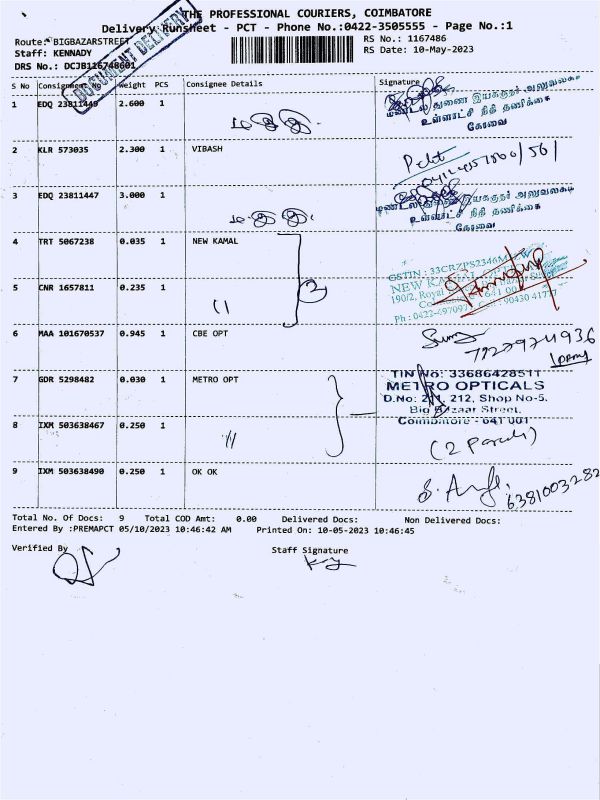 THE PROFESSIONAL COURIERS, COIMBATORE
Delivery Runsheet - PCT - Phone No.:0422-3505555 - Page No.:1
Route: BIGBAZARSTREET
RS No.: 1167486
Staff: KENNADY
RS Date: 10-May-2023
DRS No.: DCJB116748601
DOCUMENT DELIVERY
S No Consignment No Weight PCS Consignee Details Signature
1 EDQ 23811449 2.600 1
மண்டல துணை இயக்குநர் அலுவலகம்
உள்ளாட்சி நிதி தணிக்கை
கோவை
2 KLR 573035 2.300 1 VIBASH
3 EDQ 23811447 3.000 1
மண்டல துணை இயக்குநர் அலுவலகம்
உள்ளாட்சி நிதி தணிக்கை
கோவை
4 TRT 5067238 0.035 1 NEW KAMAL
GSTIN : 33CRZPS2346M
NEW KAMAL OPT
5 CNR 1657811 0.235 1 2
190/2, Royal
Coimbatore - 641 001
Ph : 0422-497097 90430 41777
6 MAA 101670537 0.945 1 CBE OPT
7 GDR 5298482 0.030 1 METRO OPT
TIN No: 33686428511
METRO OPTICALS
D.No: 211, 212, Shop No-5,
Big Bazaar Street,
Coimbatore - 641 001
8 IXM 503638467 0.250 1 "
(2 Parcels)
9 IXM 503638490 0.250 1 OK OK
6381003282
Total No. Of Docs: 9 Total COD Amt: 0.00 Delivered Docs: Non Delivered Docs:
Entered By :PREMAPCT 05/10/2023 10:46:42 AM Printed On: 10-05-2023 10:46:45
Verified By Staff Signature